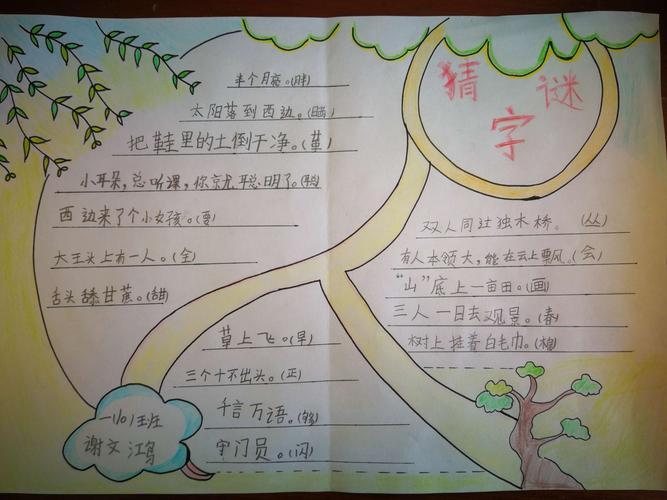 猜字谜
半个月亮。(胖)
太阳落到西边。(晒)
把鞋里的土倒干净。(革)
小耳朵，总听课，你就聪明了。(聪)
西边来了个小女孩。(要)
大王头上有一人。(全)
舌头舔甘蔗。(甜)
草上飞。(早)
三个十不出头。(正)
千言万语。(够)
守门员。(闪)
双人同过独木桥。(丛)
有人本领大，能在云上飘。(会)
“山”底上一亩田。(画)
三人一日去观景。(春)
树上挂着白毛巾。(棉)
一(10)班
谢文鸿